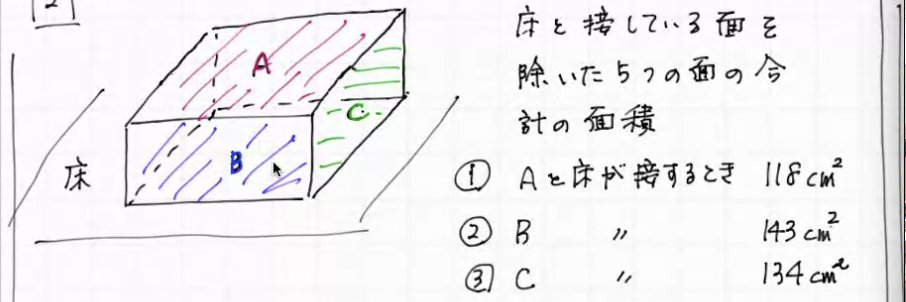 2
A
B
C
床
床と接している面を
除いた5つの面の合
計の面積
① Aと床が接するとき 118cm²
② B 〃 143cm²
③ C 〃 134cm²